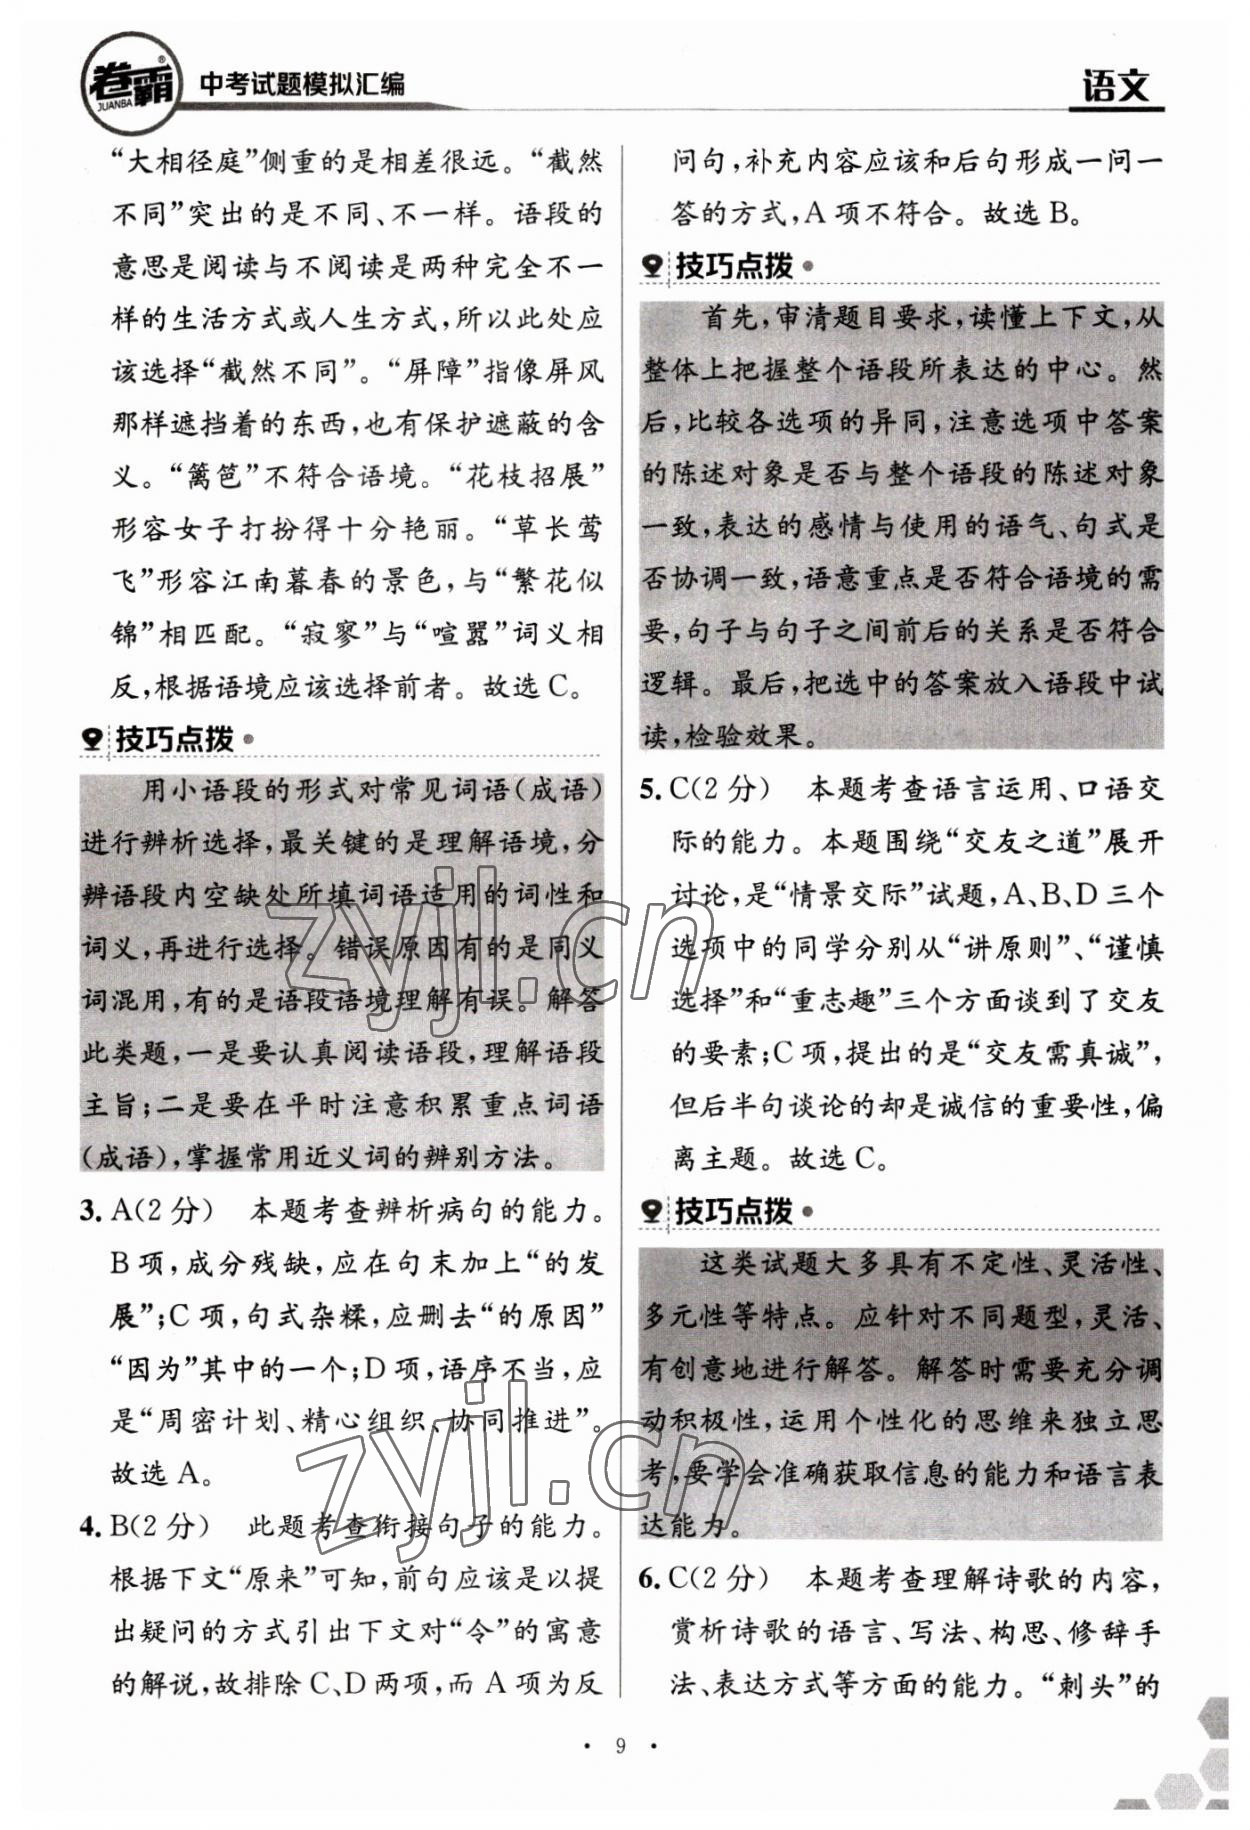 卷霸
JUANBA
中考试题模拟汇编
语文
“大相径庭”侧重的是相差很远。“截然
不同”突出的是不同、不一样。语段的
意思是阅读与不阅读是两种完全不一
样的生活方式或人生方式,所以此处应
该选择“截然不同”。“屏障”指像屏风
那样遮挡着的东西,也有保护遮蔽的含
义。“篱笆”不符合语境。“花枝招展”
形容女子打扮得十分艳丽。“草长莺
飞”形容江南暮春的景色,与“繁花似
锦”相匹配。“寂寥”与“喧嚣”词义相
反,根据语境应该选择前者。故选C。
技巧点拨
用小语段的形式对常见词语(成语)
进行辨析选择,最关键的是理解语境,分
辨语段内空缺处所填词语适用的词性和
词义,再进行选择。错误原因有的是同义
词混用,有的是语段语境理解有误。解答
此类题,一是要认真阅读语段,理解语段
主旨;二是要在平时注意积累重点词语
(成语),掌握常用近义词的辨别方法。
3. A(2分) 本题考查辨析病句的能力。
B项,成分残缺,应在句末加上“的发
展”;C项,句式杂糅,应删去“的原因”
“因为”其中的一个;D项,语序不当,应
是“周密计划、精心组织、协同推进”。
故选A。
4. B(2分) 此题考查衔接句子的能力。
根据下文“原来”可知,前句应该是以提
出疑问的方式引出下文对“令”的寓意
的解说,故排除C、D两项,而A项为反
问句,补充内容应该和后句形成一问一
答的方式,A项不符合。故选B。
技巧点拨
首先,审清题目要求,读懂上下文,从
整体上把握整个语段所表达的中心。然
后,比较各选项的异同,注意选项中答案
的陈述对象是否与整个语段的陈述对象
一致,表达的感情与使用的语气、句式是
否协调一致,语意重点是否符合语境的需
要,句子与句子之间前后的关系是否符合
逻辑。最后,把选中的答案放入语段中试
读,检验效果。
5. C(2分) 本题考查语言运用、口语交
际的能力。本题围绕“交友之道”展开
讨论,是“情景交际”试题,A、B、D三个
选项中的同学分别从“讲原则”、“谨慎
选择”和“重志趣”三个方面谈到了交友
的要素;C项,提出的是“交友需真诚”,
但后半句谈论的却是诚信的重要性,偏
离主题。故选C。
技巧点拨
这类试题大多具有不定性、灵活性、
多元性等特点。应针对不同题型,灵活、
有创意地进行解答。解答时需要充分调
动积极性,运用个性化的思维来独立思
考,要学会准确获取信息的能力和语言表
达能力。
6. C(2分) 本题考查理解诗歌的内容,
赏析诗歌的语言、写法、构思、修辞手
法、表达方式等方面的能力。“刺头”的
· 9 ·
zyjl.cn
zyjl.cn